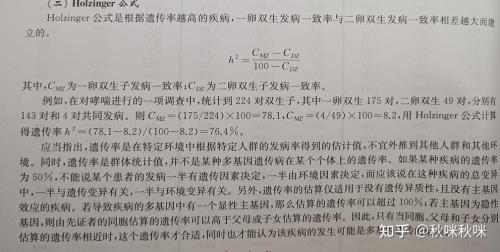 (二) Holzinger 公式
Holzinger 公式是根据遗传率越高的疾病,一卵双生发病一致率与二卵双生发病一致率相差越大而建
立的。
h² = (C_MZ − C_DZ) / (100 − C_DZ)
其中,C_MZ为一卵双生子发病一致率;C_DZ为二卵双生子发病一致率。
例如,在对哮喘进行的一项调查中,统计到 224 对双生子,其中一卵双生 175 对,二卵双生 49 对,分别有
143 对和 4 对共同发病。则 C_MZ=(175/224)×100=78.1,C_DZ=(4/49)×100=8.2,用 Holzinger 公式计算
得遗传率 h²=(78.1-8.2)/(100-8.2)=76.4%。
应当指出,遗传率是在特定环境中根据特定人群的发病率得到的估计值,不宜外推到其他人群和其他环
境。同时,遗传率是群体统计值,并不是某种多基因遗传病在某个个体上的遗传率。如果某种疾病的遗传率
为 50%,不能说某个患者的发病一半有遗传因素决定,一半由环境因素决定,而应该说在这种疾病的总变异
中,一半与遗传变异有关,一半与环境变异有关。另外,遗传率的估算仅适用于没有遗传异质性,且没有主基因
效应的疾病。若导致疾病的多基因中有一个显性主基因,那么估算的遗传率可以超过 100%;若主基因为隐性
基因,则由先证者的同胞估算的遗传率可以高于父母或子女估算的遗传率。因此,只有当同胞、父母和子女分别
估算的遗传率相近时,这个遗传率才合适,同时也才能认为该疾病的发生可能是多
知乎 @秋咪秋咪